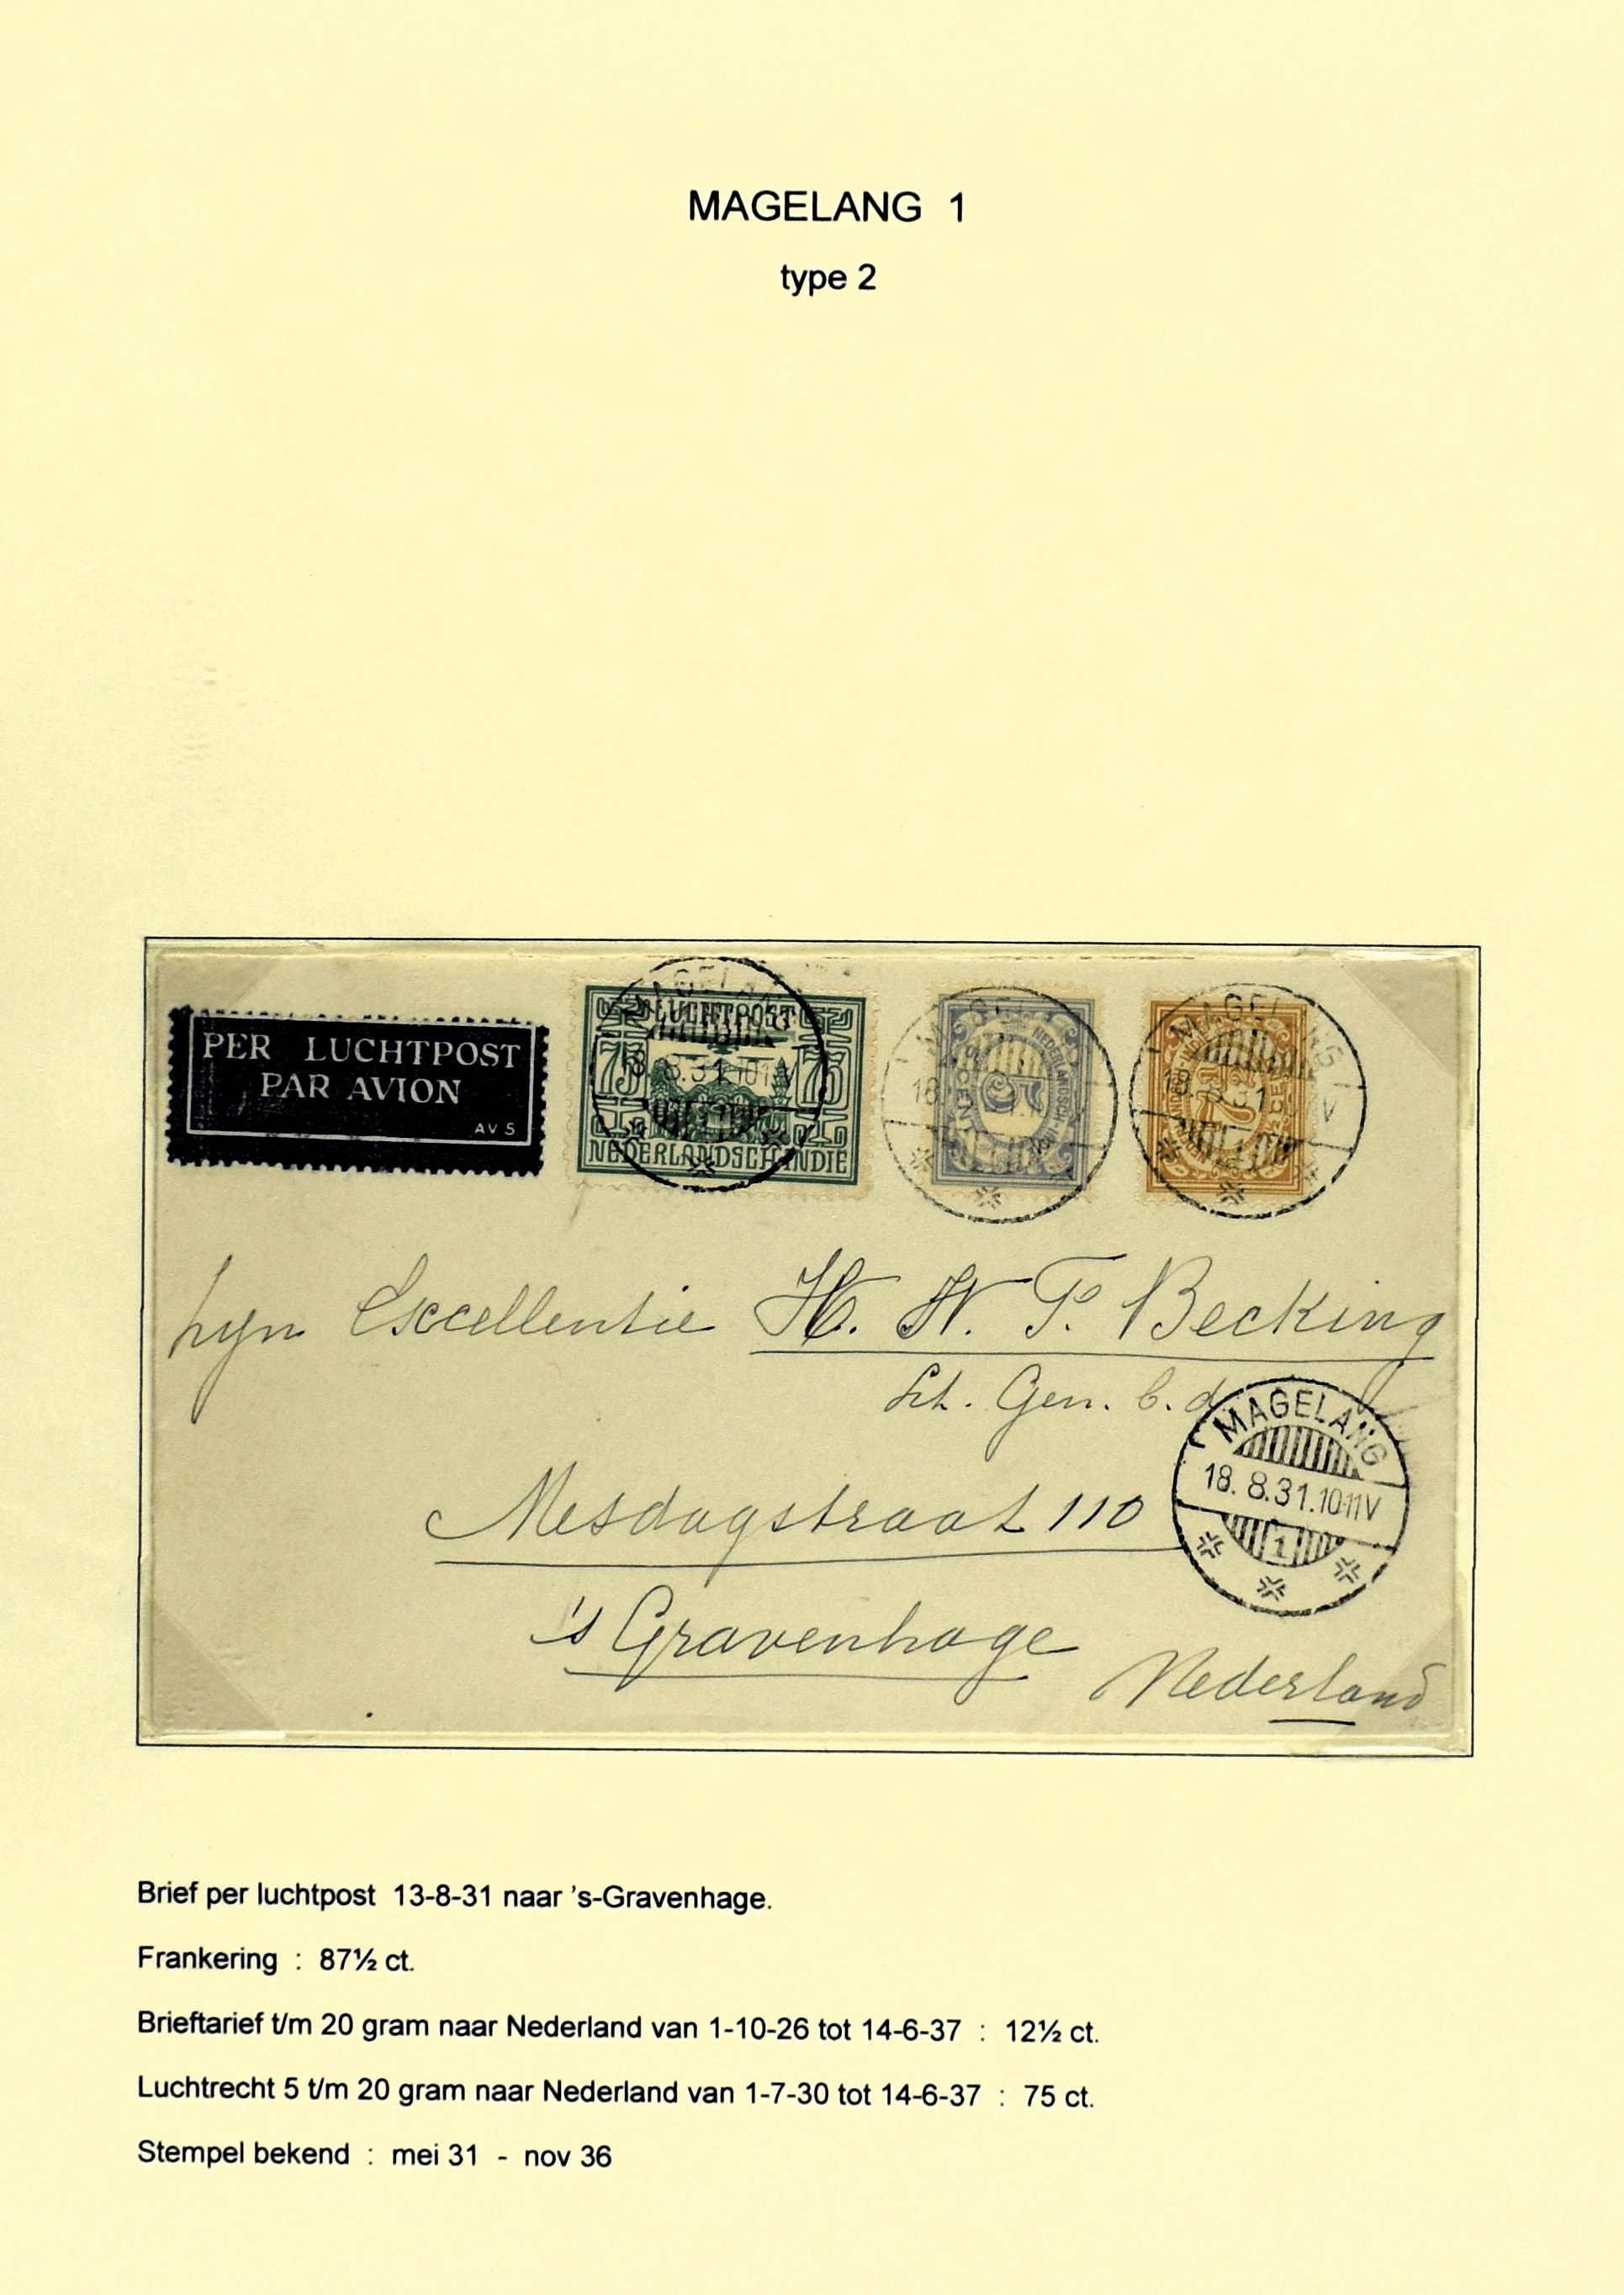 MAGELANG 1
type 2
PER LUCHTPOST
PAR AVION
AV 5
LUCHTPOST
75 75
NEDERLANDSCH-INDIE
MAGELANG
18.8.31.10-11V
5
CENT
NEDERLANDSCH-INDIE
MAGELANG
18.8.31
7½
Excellentie H. W. P. Becking
Lt. Gen. b.d.
Mesdagstraat 110
's Gravenhage
Nederland
MAGELANG
18.8.31.10-11V
1
Brief per luchtpost 13-8-31 naar 's-Gravenhage.
Frankering : 87½ ct.
Brieftarief t/m 20 gram naar Nederland van 1-10-26 tot 14-6-37 : 12½ ct.
Luchtrecht 5 t/m 20 gram naar Nederland van 1-7-30 tot 14-6-37 : 75 ct.
Stempel bekend : mei 31 - nov 36